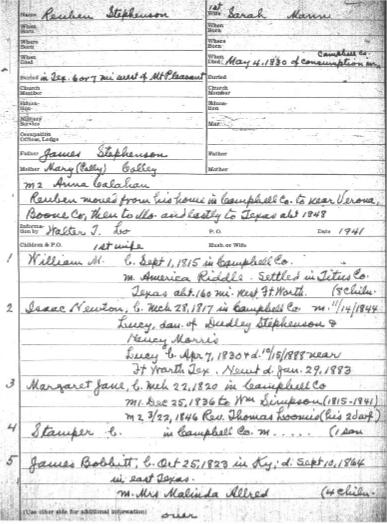 Name Reuben Stephenson 1st Wife Sarah Mann
When Born When Born
Where Born Where Born
When Died When Died May 4, 1830 of Consumption Campbell Co.
Buried in Tex. 6 or 7 mi west of Mt Pleasant Buried
Church Member Church Member
Education Education
Military Service Mar
Occupation Offices, Lodge
Father James Stephenson Father
Mother Mary (Colly) Colley Mother
m 2 Anna Calahan
Reuben moved from his home in Campbell Co. to near Verona,
Boone Co, then to Mo. and lastly to Texas abt 1848
Information by Walter T. Lo P. O. Date 1941
Children & P.O. 1st wife Hush. or Wife
1 William M. b. Sept 1, 1815 in Campbell Co.
m. America Riddle. Settled in Titus Co.
Texas abt. 160 mi. West Ft Worth. (8 Chiln.
2 Isaac Newton, b. Mch 28, 1817 in Campbell Co m. 11/14/1844
Lucy, dau. of Dudley Stephenson &
Nancy Morris
Lucy b Apr 7, 1830 & d 10/15/1888 near
Ft Worth Tex. Newt d Jan. 29, 1883
3 Margaret Jane, b. Mch 22, 1820 in Campbell Co
m1. Dec 25, 1836 to Wm Simpson (1815-1841)
m2 3/22, 1846 Rev. Thomas Loomis (his 2d wf)
4 Stamper b. in Campbell Co. m. . . . . . (1 son
5 James Bobbitt, b. Oct 25, 1823 in Ky; d. Sept 10, 1864
in east Texas.
m. Mrs Malinda Allred (4 Chiln.
(Use other side for additional information) over